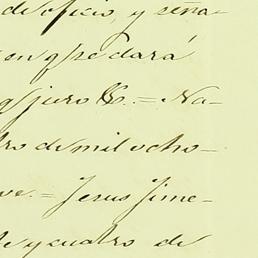 de oficio, y seña-
en q̃ se dará
q̃ juro &. = Na-
ro de mil ocho-
ve. = Jesus Jime-
te y cuatro de